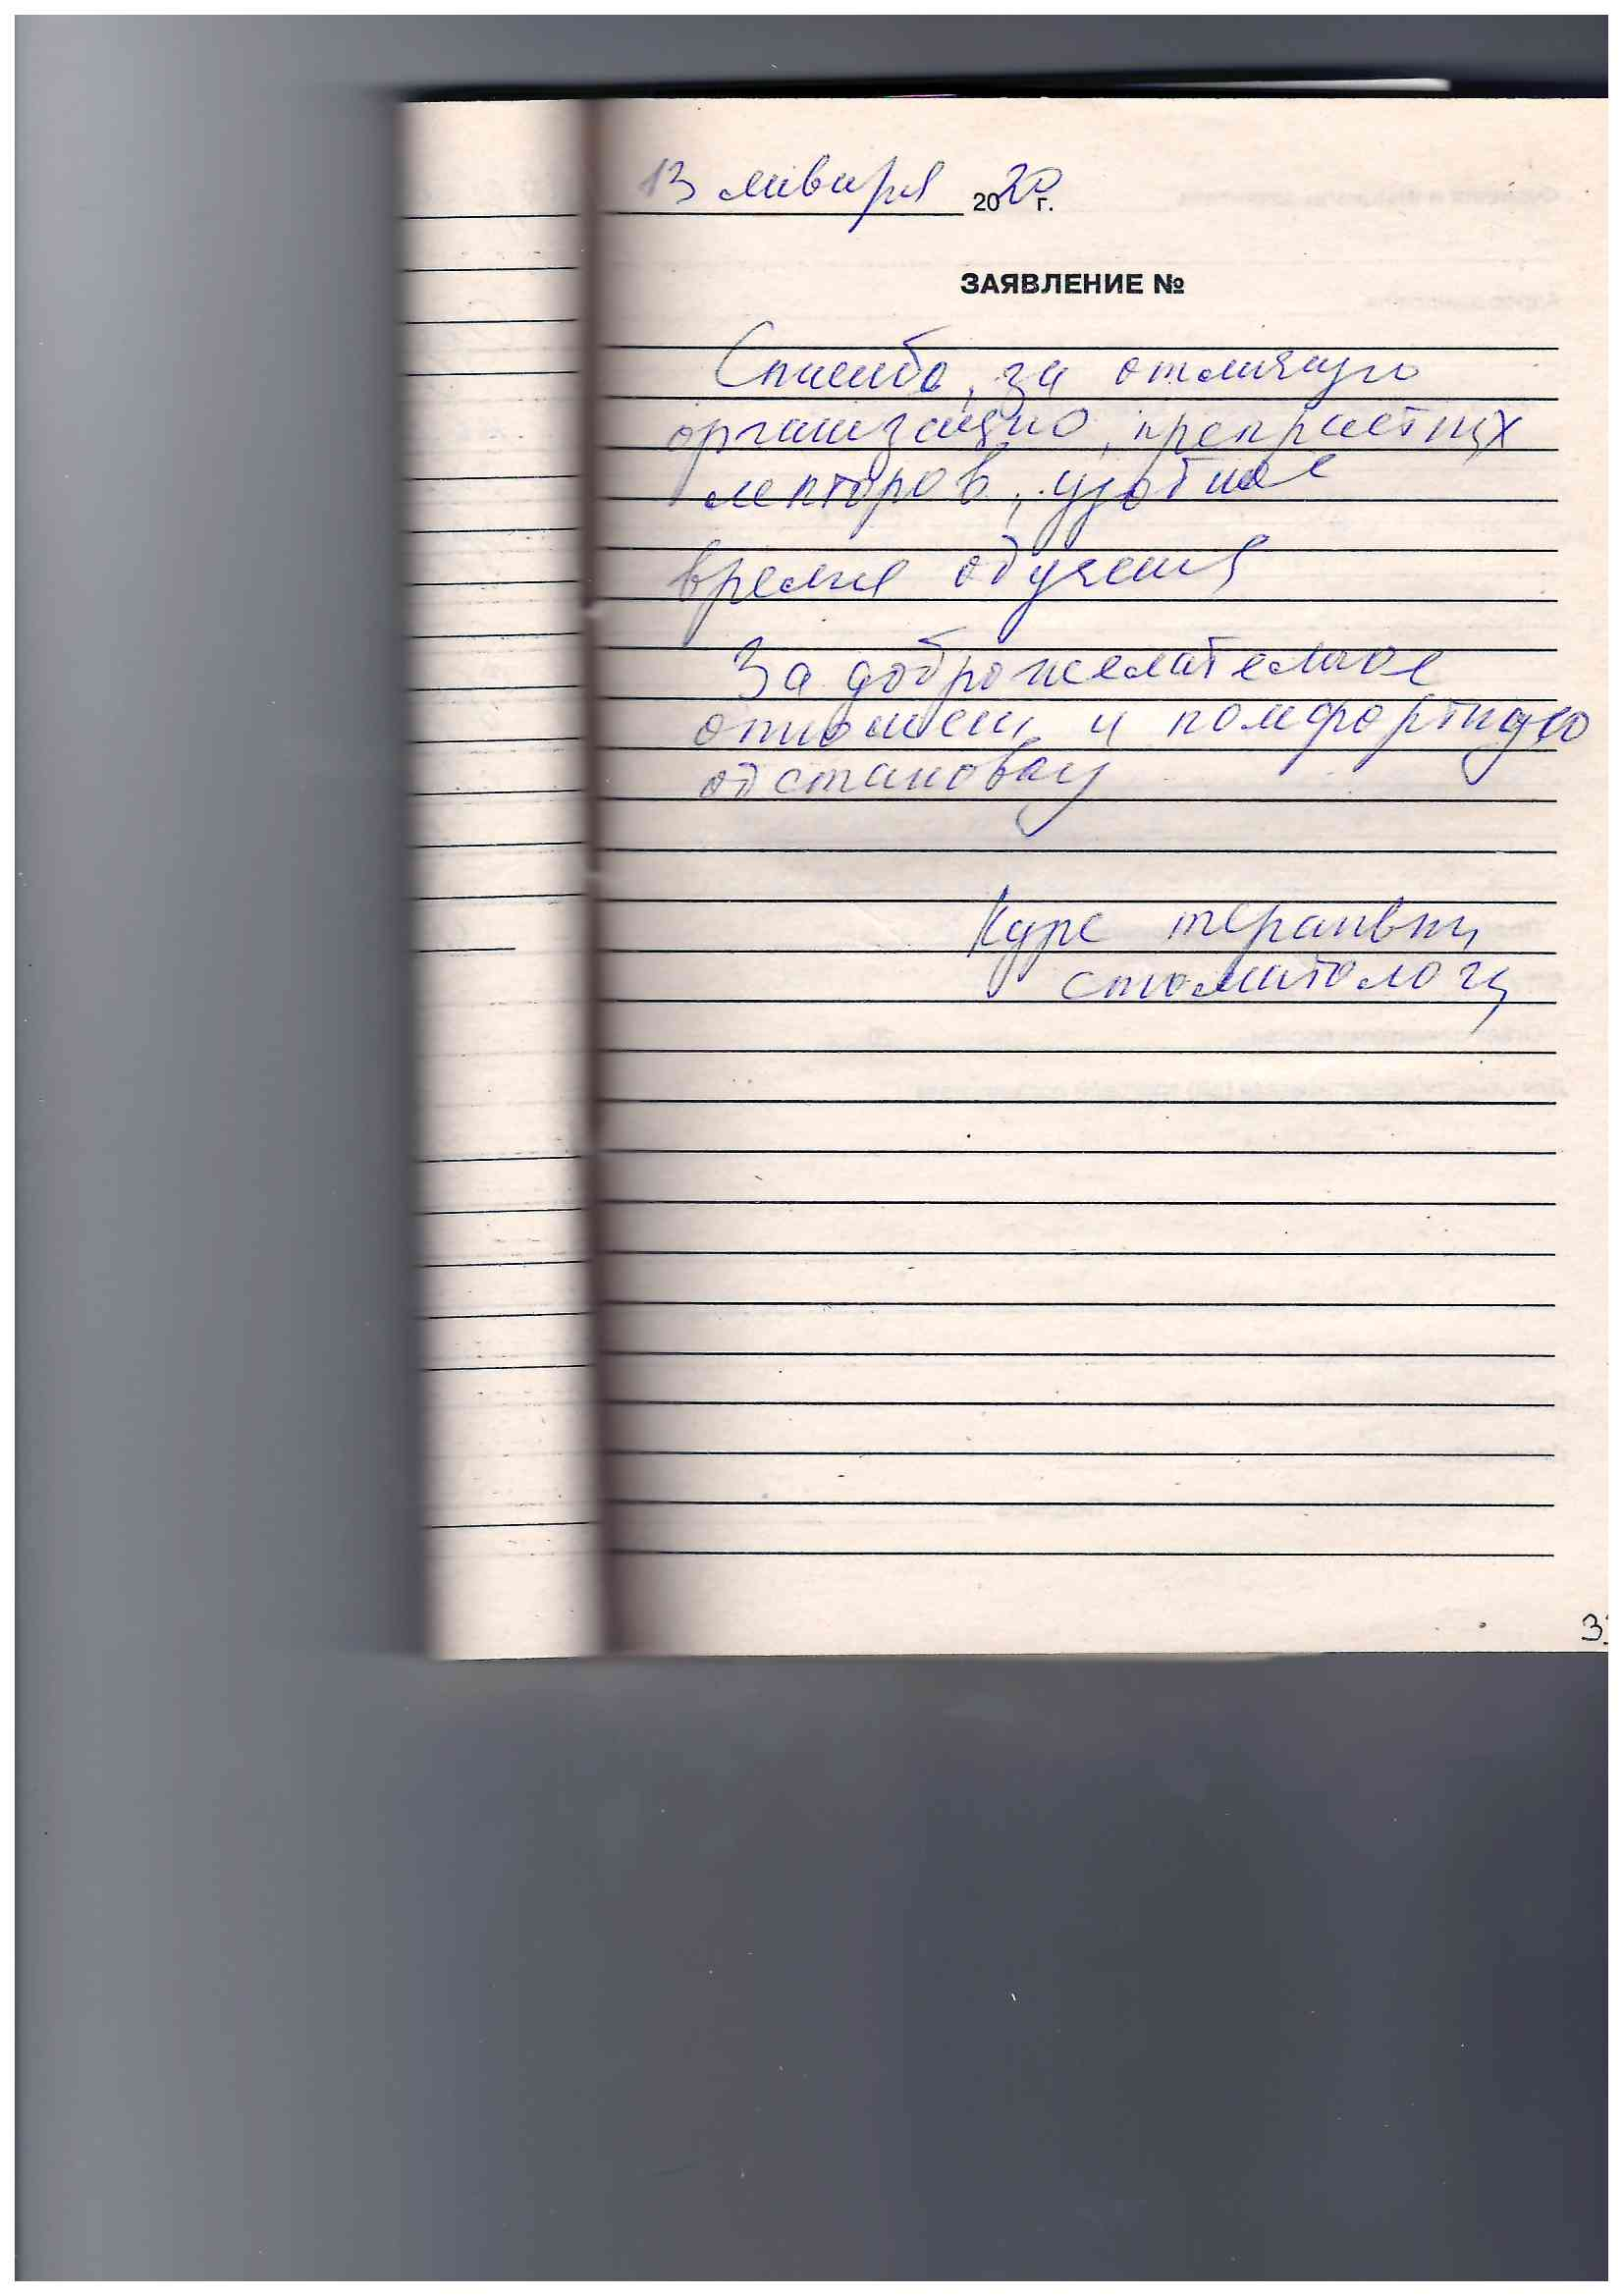 13 января 2020 г.
ЗАЯВЛЕНИЕ №
Спасибо, за отличную
организацию, прекрастных
лекторов, удобное
время обучения
За доброжелательное
отношен. и комфортную
обстановку
Курс терапевты
стоматологи